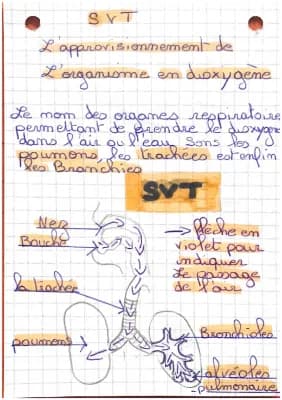 SVT
L'approvisionnement de
L'organisme en dioxygène
Le nom des organes respiratoire
permettant de prendre le dioxygène
dans l'air ou l'eau. Sons les
poumons, les trachées est enfin
les Branchies
SVT
Nez
Bouche
→ flèche en
violet pour
indiquer
Le passage
de l'air
la trachée
Bronchioles
poumons
alvéoles
pulmonaire